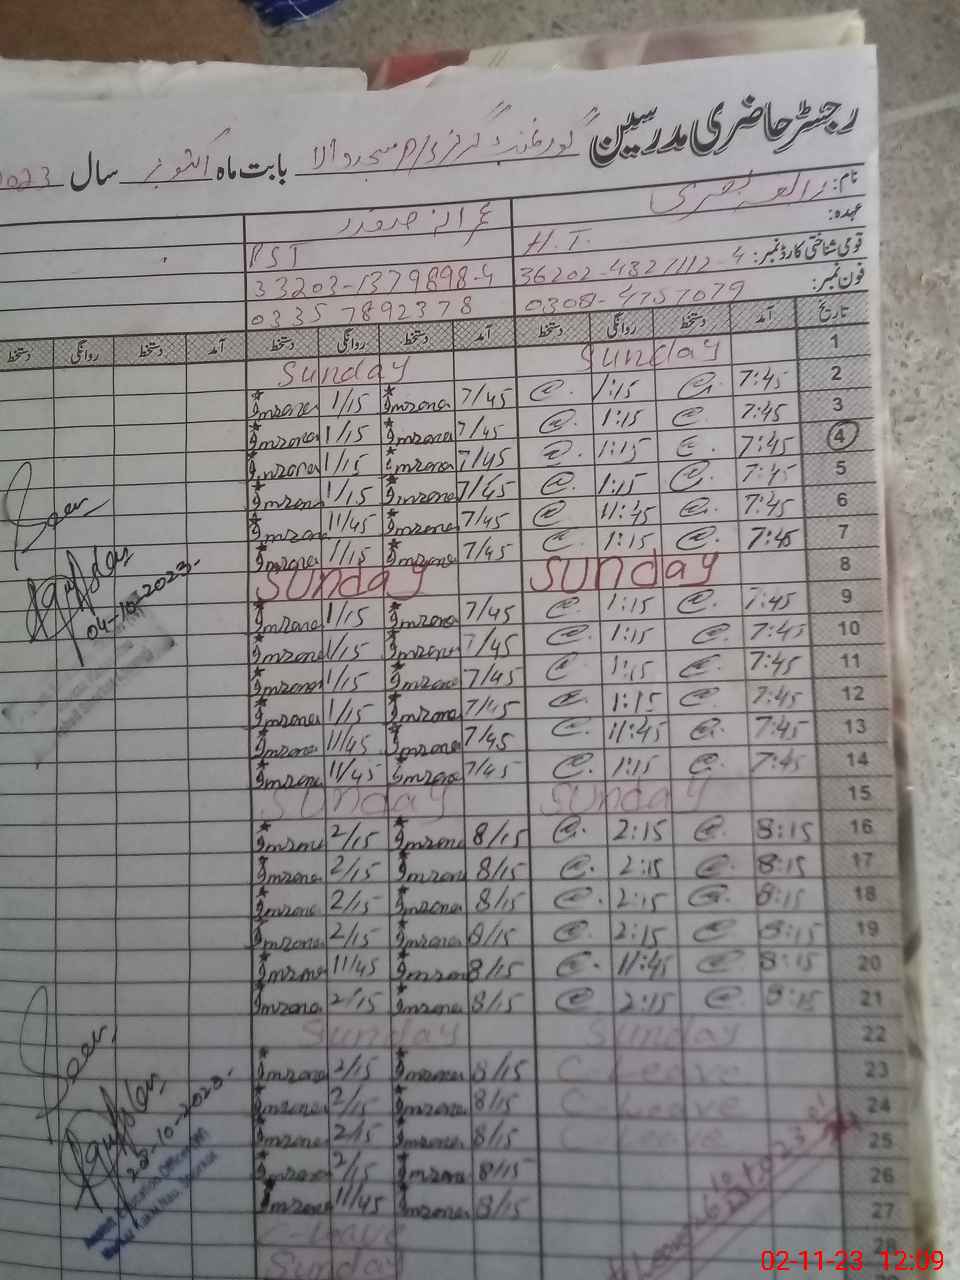 رجسٹر حاضری مدرسین گورنمنٹ گرلز P/S مسجد والا بابت ماہ اکتوبر سال 2023
نام:
عہدہ: H.T. PST
قومی شناختی کارڈ نمبر: 36202-4321112-4 33203-1379898-4
فون نمبر: 0308-4757079 0335 7892378
تاریخ آمد دستخط روانگی دستخط آمد دستخط روانگی دستخط آمد دستخط روانگی دستخط
1 Sunday Sunday
2 7:45 @ 1:15 @. 7/45 Imrana 1/15 Imrana
3 7:45 @ 1:15 @. 7/45 Imrana 1/15 Imrana
4 7:45 @ 1:15 @. 7/45 Imrana 1/15 Imrana
5 7:45 @. 1:15 @. 7/45 Imrana 1/15 Imrana
6 7:45 @. 11:45 @ 7/45 Imrana 11/45 Imrana
7 7:45 @. 1:15 @. 7/45 Imrana 1/15 Imrana
8 Sunday Sunday
9 7:45 @. 1:15 @. 7/45 Imrana 1/15 Imrana
10 7:45 @. 1:15 @. 7/45 Imrana 1/15 Imrana
11 7:45 @. 1:15 @. 7/45 Imrana 1/15 Imrana
12 7:45 @. 1:15 @. 7/45 Imrana 1/15 Imrana
13 7:45 @. 11:45 @. 7/45 Imrana 11/45 Imrana
14 7:45 @. 1:15 @. 7/45 Imrana 11/45 Imrana
15 Sunday Sunday
16 8:15 @. 2:15 @. 8/15 Imrana 2/15 Imrana
17 8:15 @. 2:15 @. 8/15 Imrana 2/15 Imrana
18 8:15 @. 2:15 @. 8/15 Imrana 2/15 Imrana
19 8:15 @ 2:15 @. 8/15 Imrana 2/15 Imrana
20 8:15 @ 11:45 @. 8/15 Imrana 11/45 Imrana
21 8:15 @. 2:15 @. 8/15 Imrana 2/15 Imrana
22 Sunday Sunday
23 C-Leave 8/15 Imrana 2/15 Imrana
24 C-Leave 8/15 Imrana 2/15 Imrana
25 C-Leave 8/15 Imrana 2/15 Imrana
26 8/15 Imrana 2/15 Imrana
27 8/15 Imrana 11/45 Imrana
28 C-Leave
Sunday
Seen
04-10-2023
Seen
28-10-2023
02-11-23 12:09